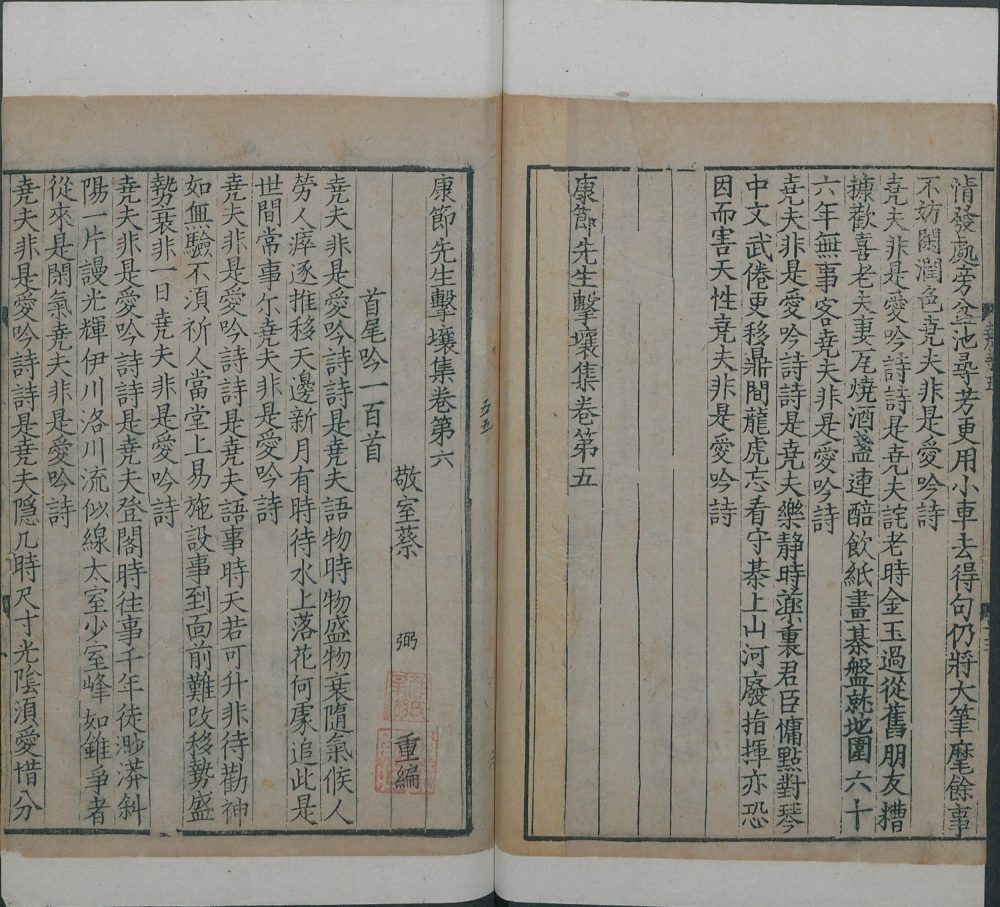 情發處旁盆池尋芳更用小車去得句仍將大筆麾餘事
不妨閑潤色堯夫非是愛吟詩
堯夫非是愛吟詩詩是堯夫詫老時金玉過從舊朋友糟
糠歡喜老夫妻瓦燒酒盞連醅飲紙畫棊盤就地圍六十
六年無事客堯夫非是愛吟詩
堯夫非是愛吟詩詩是堯夫樂静時藥裏君臣慵點對琴
中文武倦更移鼎間龍虎忘看守棊上山河廢指揮亦恐
因而害天性堯夫非是愛吟詩
康節先生擊壤集卷第五
五五
康節先生擊壤集卷第六
敬室蔡 弼 重編
首尾吟一百首
堯夫非是愛吟詩詩是堯夫語物時物盛物衰隨氣候人
勞人瘁逐推移天邊新月有時待水上落花何處追此是
世間常事尒堯夫非是愛吟詩
堯夫非是愛吟詩詩是堯夫語事時天若可升非待勸神
如無驗不須祈人當堂上易施設事到面前難改移勢盛
勢衰非一日堯夫非是愛吟詩
堯夫非是愛吟詩詩是堯夫登閣時往事千年徒渺漭斜
陽一片謾光輝伊川洛川流似線太室少室峰如錐爭者
從來是閑氣堯夫非是愛吟詩
堯夫非是愛吟詩詩是堯夫隱几時尺寸光陰須愛惜分